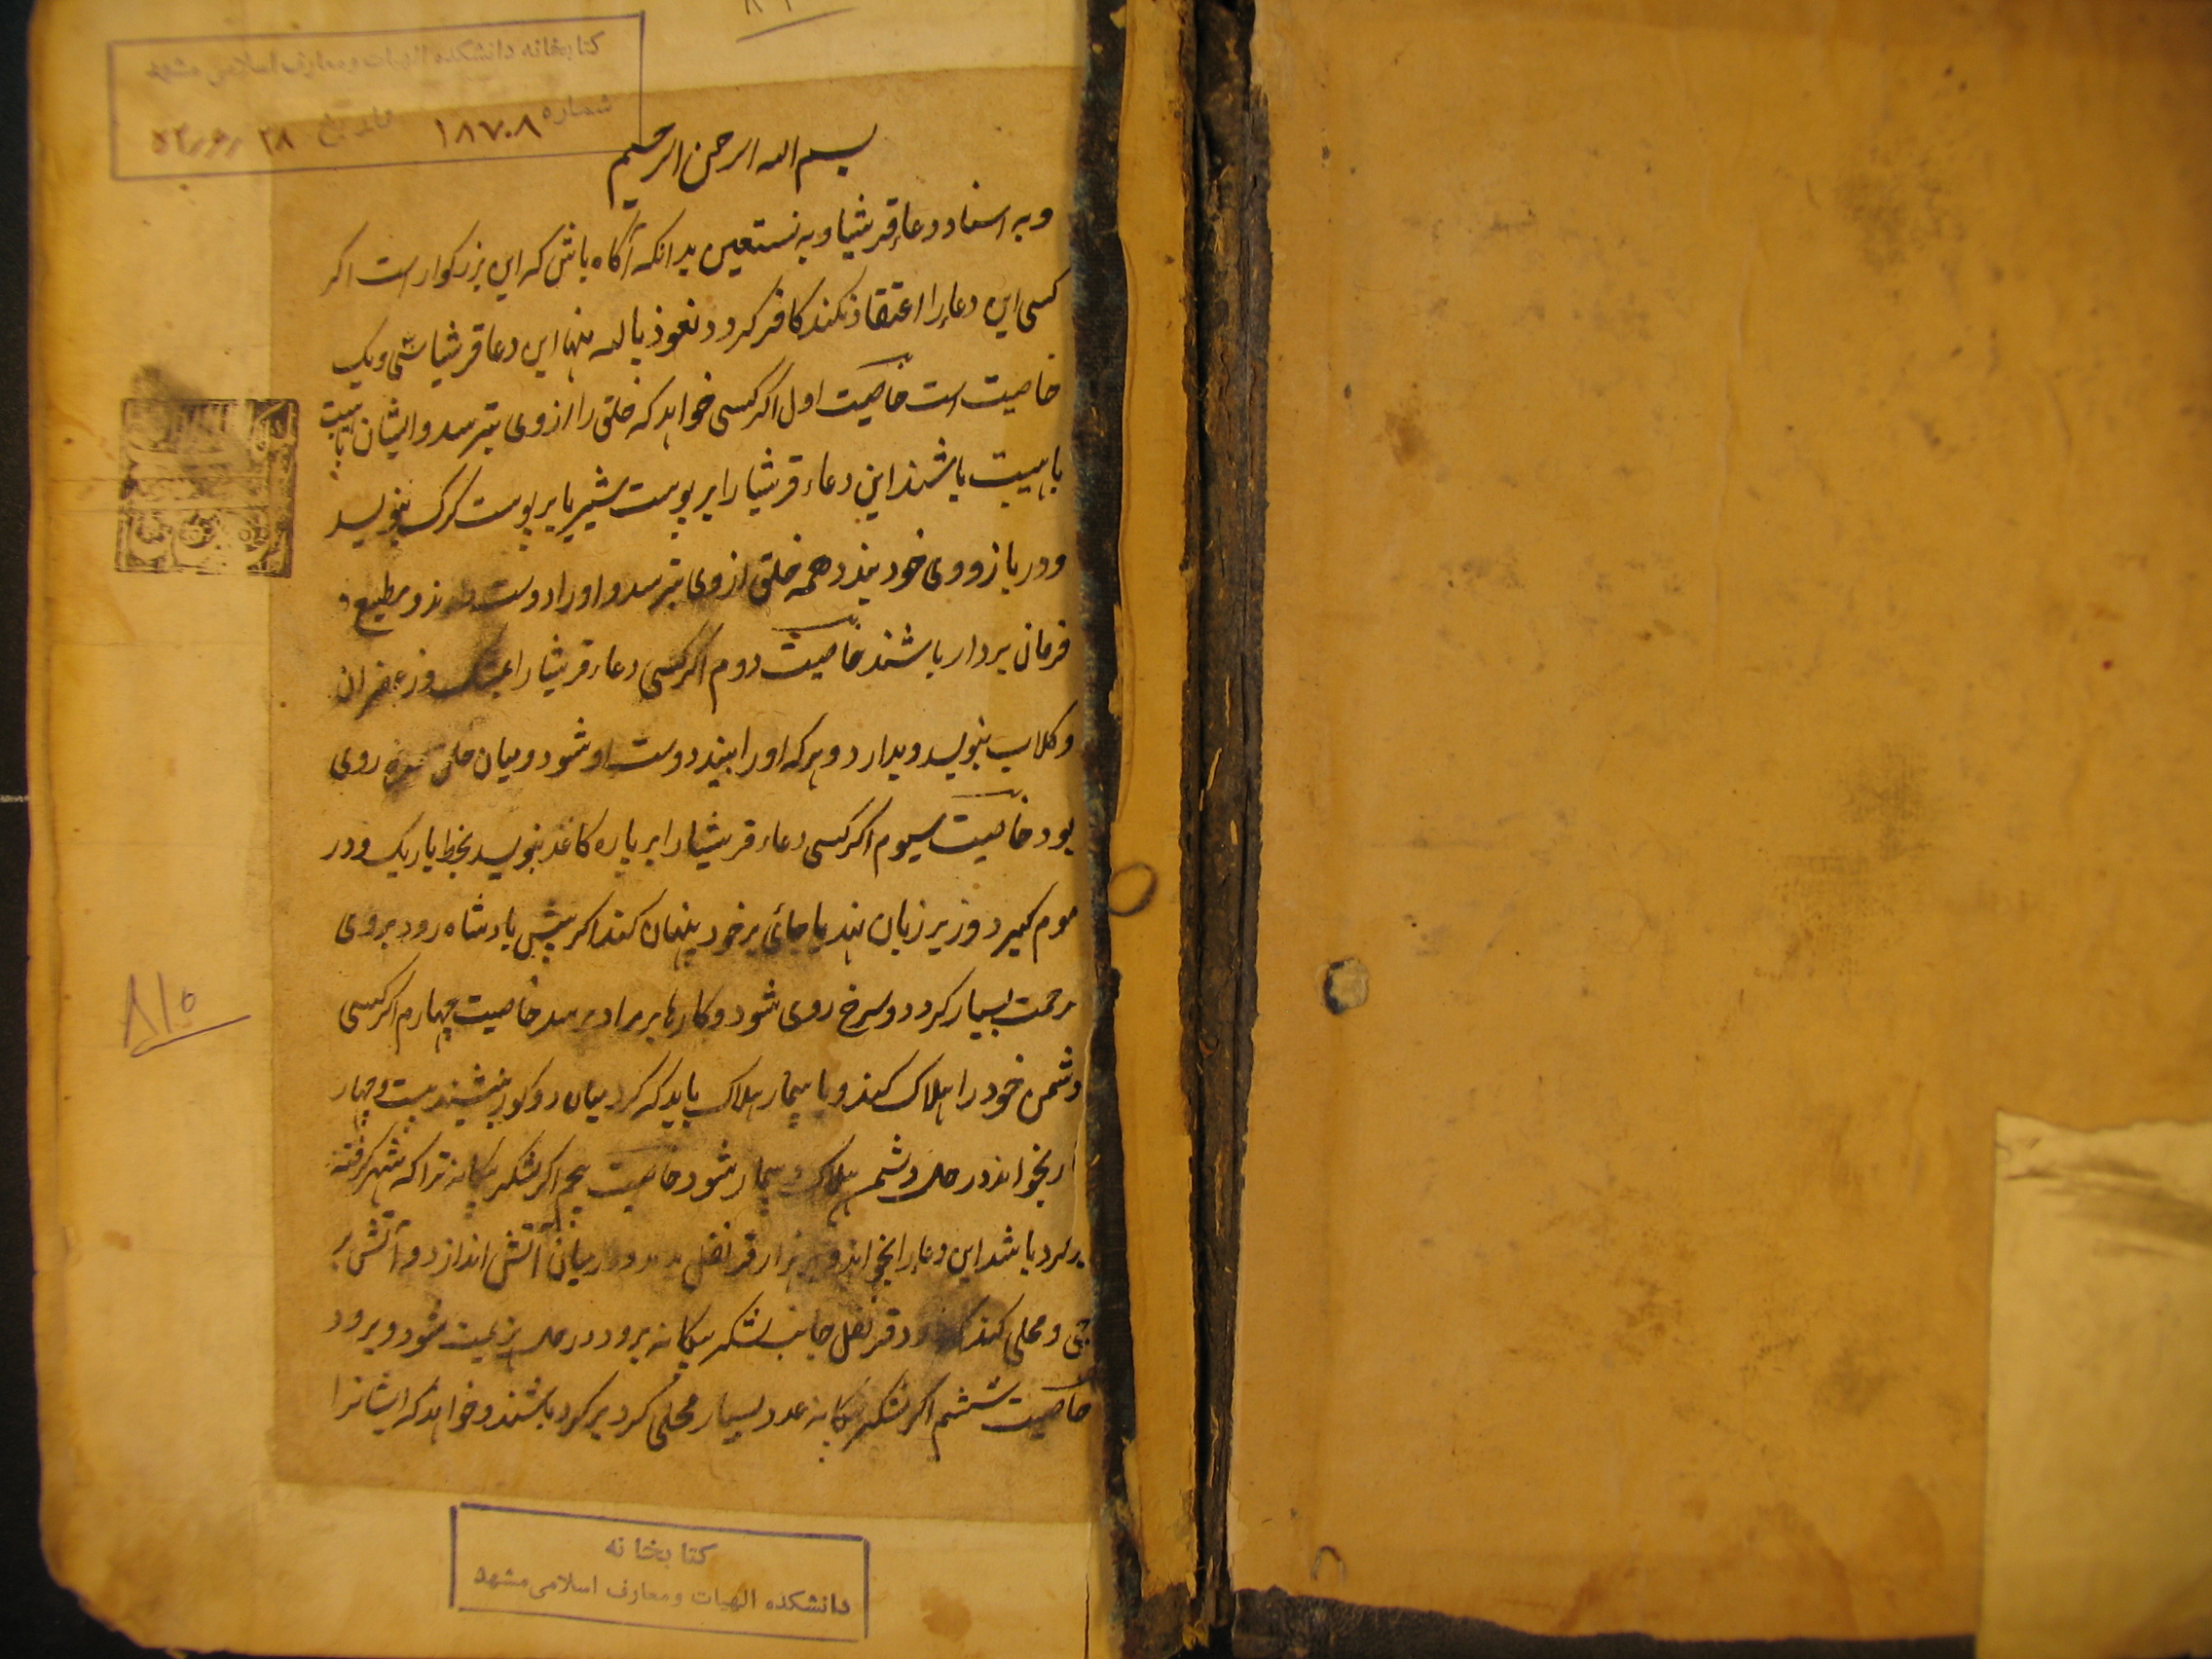 کتابخانه دانشکده الهیات و معارف اسلامی مشهد
شماره ۱۸۷۰۸ تاریخ ۲۸
بسم الله الرحمن الرحیم
وبه اسناد دعاء قرشیا وبه نستعین بدانکه آگاه باش که این بزرکوار است اکر
کسی این دعاء را اعتقاد نکند کافر کردد نعوذ بالله منها این دعا قرشیا سی ویک
خاصیت است خاصیت اول اکر کسی خواهد که خلق را از وی بترسد وایشان باهیبت
باهیبت باشند این دعاء قرشیا را بر پوست شیر یا بر پوست کرک بنویسد
ودر بازووی خود بندد همه خلق از وی بترسد واورا دوست دارند ومطیع و
فرمان بردار باشند خاصیت دوم اکر کسی دعاء قرشیا را بمشک وزعفران
وکلاب بنویسد وبدارد وهرکه اورا بیند دوست او شود ومیان خلق روی
بود خاصیت سیوم اکر کسی دعاء قرشیا را بر پاره کاغذ بنویسد بخط باریک ودر
موم کیرد وزیر زبان نهد یا جائی بر خود پنهان کند اکر پیش پادشاه رود بروی
رحمت بسیار کردد وسرخ روی شود وکارها بر مراد برسد خاصیت چهارم اکر کسی
دشمن خود را هلاک کند ویا بیمار هلاک باید که کرد میان دو کور بنشیند بیست وچهار
بخواند در حال دشمن هلاک وبیمار شود خاصیت پنجم اکر لشکر بیکانه ترا که شهر کرفته
برکرد باشد این دعا را بخواند وهزار قرنفل ودر میان آتش اندازد وآتش بر
ومحلی کند که دود قرنفل جانب لشکر بیکانه برود در حال هزیمت شود وبرود
خاصیت ششم اکر لشکر بیکانه عدد بسیار محلی کرد برکرد باشند وخواهد که ایشانرا
۸۱۵
کتابخانه
دانشکده الهیات و معارف اسلامی مشهد